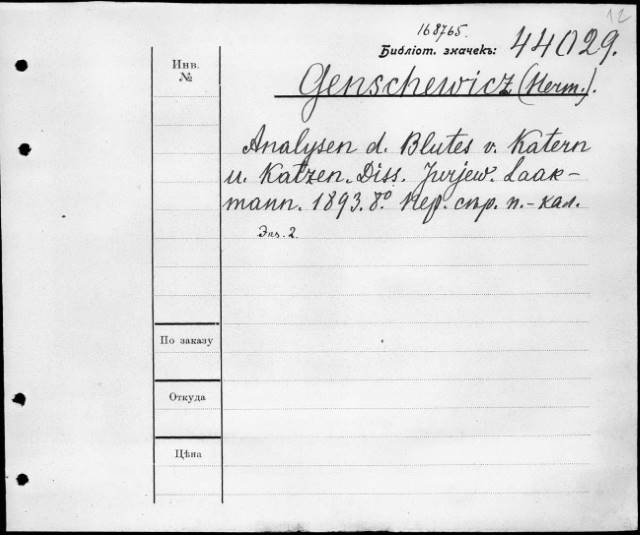 12
168765.
Библіот. значекъ: 44029.
Инв.
№
Genschewicz (Herm.).
Analysen d. Blutes v. Katern
u. Katzen. Diss. Jurjew. Laak-
mann. 1893. 8º Нер. стр. п.-кал.
Экз. 2.
По заказу
Откуда
Цѣна